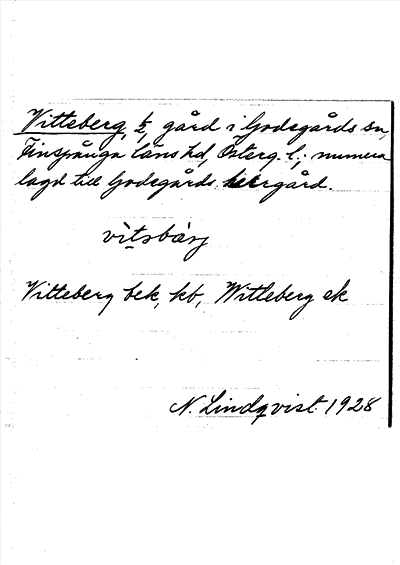 Vitteberg, ½, gård i Godegårds sn,
Finspånga läns hd, Österg. l.; numera
lagd till Godegårds herrgård.
vitsbärj
Vitteberg bek, kb, Wittleberg ek
N. Lindqvist 1928